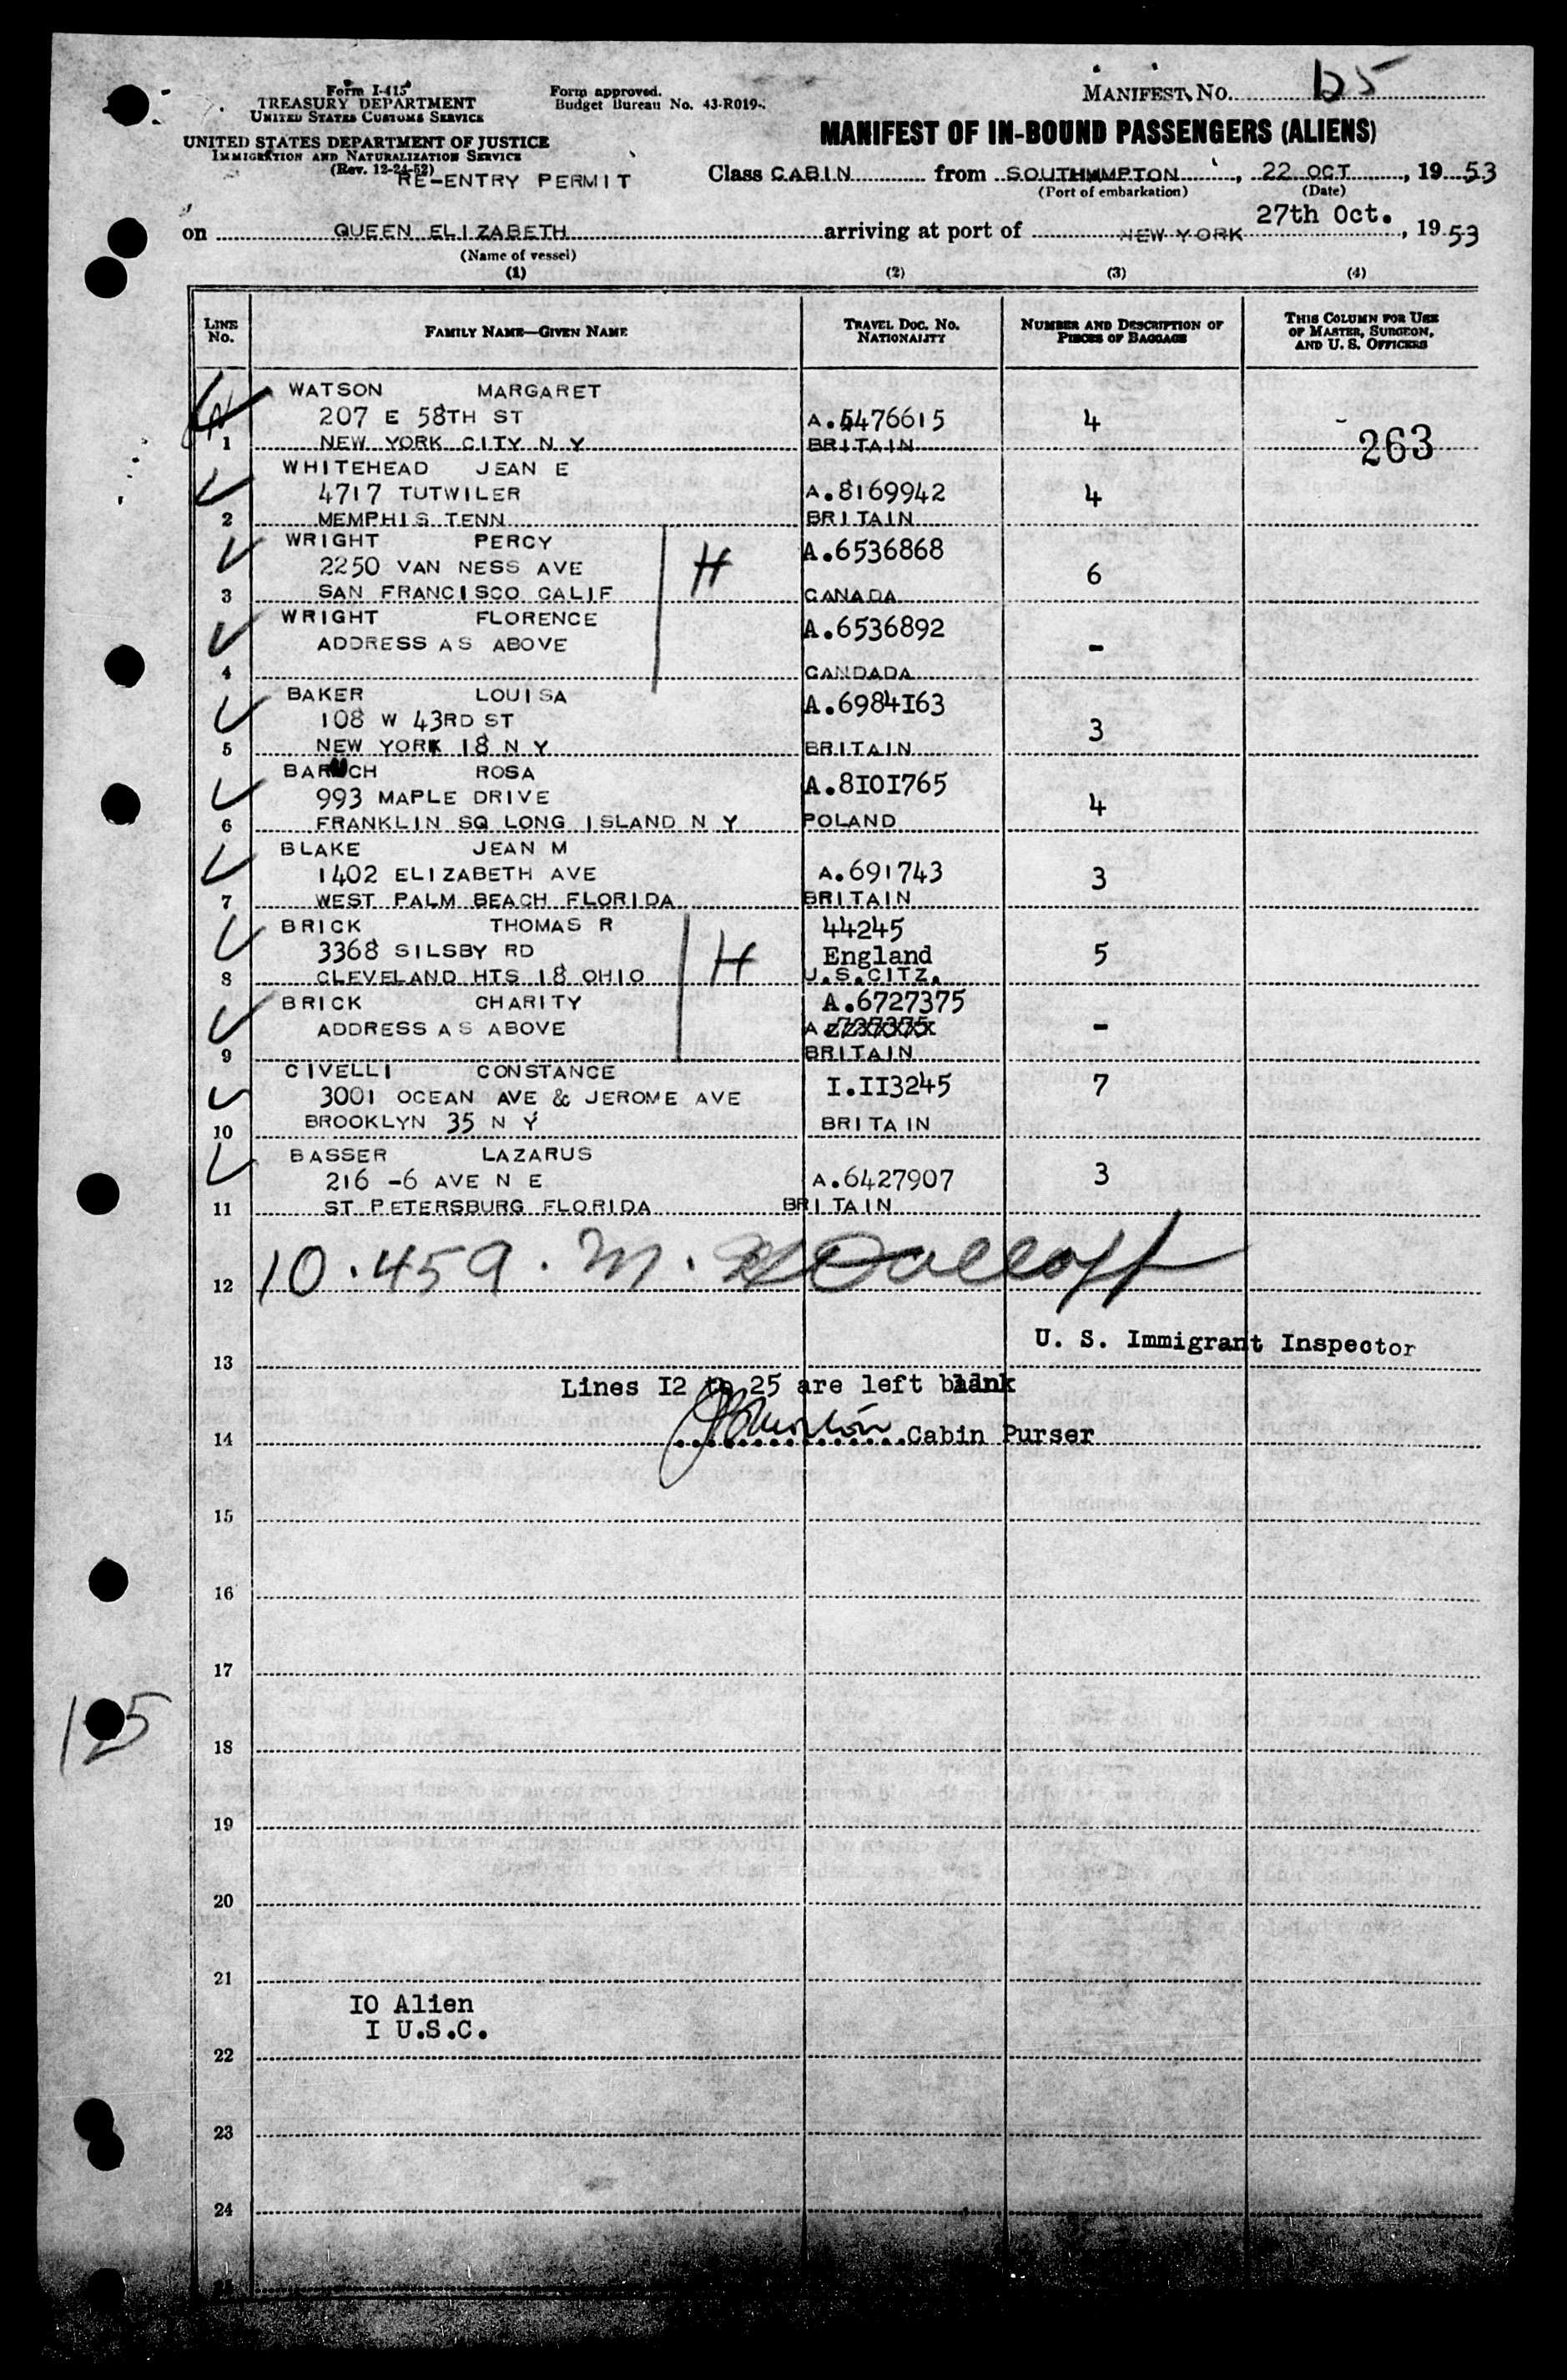 Form I-415
TREASURY DEPARTMENT
UNITED STATES CUSTOMS SERVICE
UNITED STATES DEPARTMENT OF JUSTICE
IMMIGRATION AND NATURALIZATION SERVICE
(Rev. 12-24-52)
RE-ENTRY PERMIT
Form approved.
Budget Bureau No. 43-R019-
MANIFEST NO.
MANIFEST OF IN-BOUND PASSENGERS (ALIENS)
Class CABIN from SOUTHAMPTON, 22 OCT, 1953
(Port of embarkation) (Date)
on QUEEN ELIZABETH arriving at port of NEW YORK 27th Oct., 1953
(Name of vessel)
(1) (2) (3) (4)
LINE NO. FAMILY NAME—GIVEN NAME TRAVEL DOC. NO. NATIONALITY NUMBER AND DESCRIPTION OF PIECES OF BAGGAGE THIS COLUMN FOR USE OF MASTER, SURGEON, AND U. S. OFFICERS
WATSON MARGARET
207 E 58TH ST A.5476615 4
1 NEW YORK CITY N Y BRITAIN 263
WHITEHEAD JEAN E
4717 TUTWILER A.8169942 4
2 MEMPHIS TENN BRITAIN
WRIGHT PERCY A.6536868
2250 VAN NESS AVE H 6
3 SAN FRANCISCO CALIF CANADA
WRIGHT FLORENCE A.6536892
ADDRESS AS ABOVE -
4 CANDADA
BAKER LOUISA A.6984I63
108 W 43RD ST 3
5 NEW YORK 18 N Y BRITAIN
BARUCH ROSA A.8I0I765
993 MAPLE DRIVE 4
6 FRANKLIN SQ LONG ISLAND N Y POLAND
BLAKE JEAN M
1402 ELIZABETH AVE A.691743 3
7 WEST PALM BEACH FLORIDA BRITAIN
BRICK THOMAS R 44245
3368 SILSBY RD H England 5
8 CLEVELAND HTS 18 OHIO U.S.CITZ.
BRICK CHARITY A.6727375
ADDRESS AS ABOVE A -
9 BRITAIN
CIVELLI CONSTANCE I.II3245 7
3001 OCEAN AVE & JEROME AVE
10 BROOKLYN 35 N Y BRITAIN
BASSER LAZARUS
216 -6 AVE N E A.6427907 3
11 ST PETERSBURG FLORIDA BRITAIN
12 10.459. M.
U. S. Immigrant Inspector
13
Lines I2 to 25 are left blank
14 Cabin Purser
15
16
17
125
18
19
20
21
IO Alien
I U.S.C.
22
23
24
25